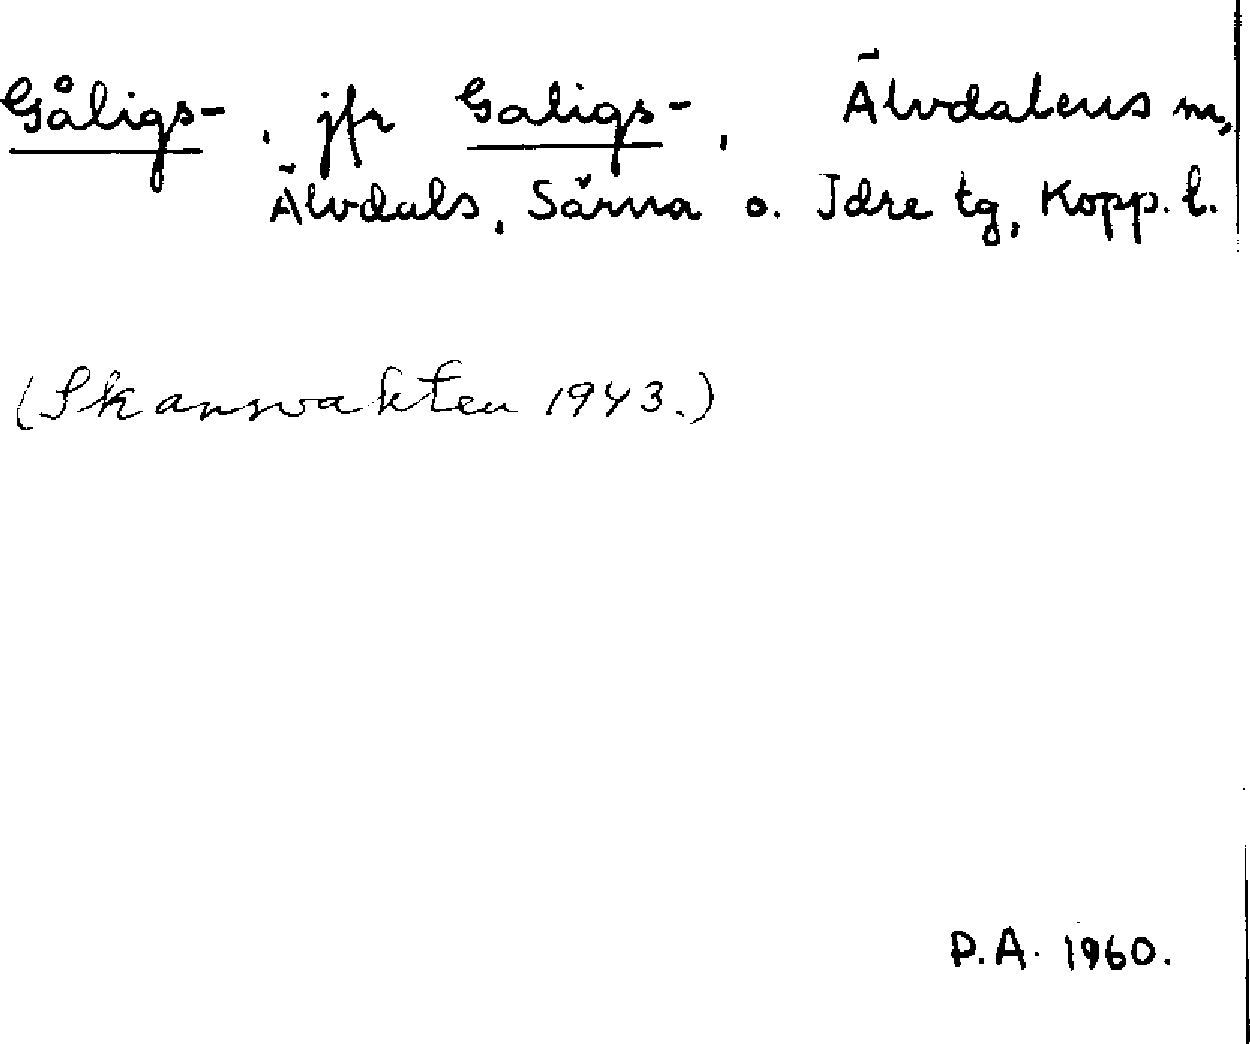 Gåligs-, jfr Galigs-, Älvdalens m,
Älvdals, Särna o. Idre tg, Kopp. l.
(Skansvakten 1943.)
P.A. 1960.